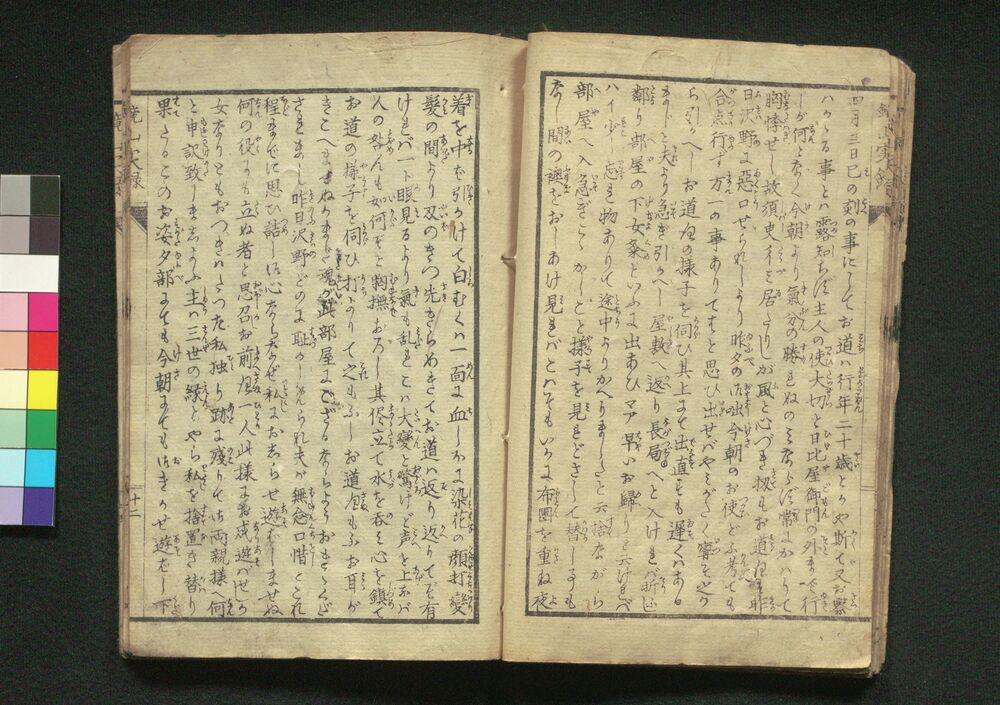 四月三日巳の刻の事にしてお道ハ行年二十歳とかや斯て又お粂
ハかゝる事とハ露知らず主人の使大切と日比屋御門の外まで行
しが何となく今朝より氣分の勝れぬのミならず常にかハりて
胸悸せし故須臾イミ居たりしが風と心づき扨もお道さま昨
日沢野に惡口せられしより昨夕の仰せ今朝のお使どふ考ても
合点行ず万一の事ありてはと思ひ出せバやミがたく
ら引かへしお道さまの様子を伺ひ其上にて出直すも遲くハある
まじと夫より急ぎ引かへし屋敷へ返り長局へと入けれバ折ふし
鄰り部屋の下女粂といふに出あひマア早いお歸りと云けれバ
ハイ少し忘れ物ありて途中よりかへりましたと云捨ながら
部屋へ入急ぎてかしこと様子を見れどさして替し事も
なし間の襖をおしあけ見れバこハそもいかに布團を重ね夜
着を中に引かけて白むくハ一面に血しほに染花の顔打變
髮の間より双のきつ先きらめきてお道ハ返り返りてぞ有
けれバ一ト眼見るより氣も乱れこハ大變と驚けど声を上なバ
人の咎んも如何ぞと胸撫おろし其侭立て水を呑ミ心を鎭て
お道の様子を伺ひ打よりて之もふしお道さまもふお耳が
きこへませぬかまだ魂が此部屋にござるならようおきゝくだ
さりまし昨日沢野どのに恥かしめられ夫が無念口惜とこれ
程までに思ひ詰し御心ならなぜ私におしらせ遊しませぬ
何の役にも立ぬ者と思召お前さま一人此様な有成遊バせしか
女なりともおつきハたつた私独り跡に殘りて御両親様へ何
と申訳致しましよふ主ハ三世の縁とやら私を捨置き替り
果たるこのお姿夕部にても今朝にても御きかせ遊バし下
十二